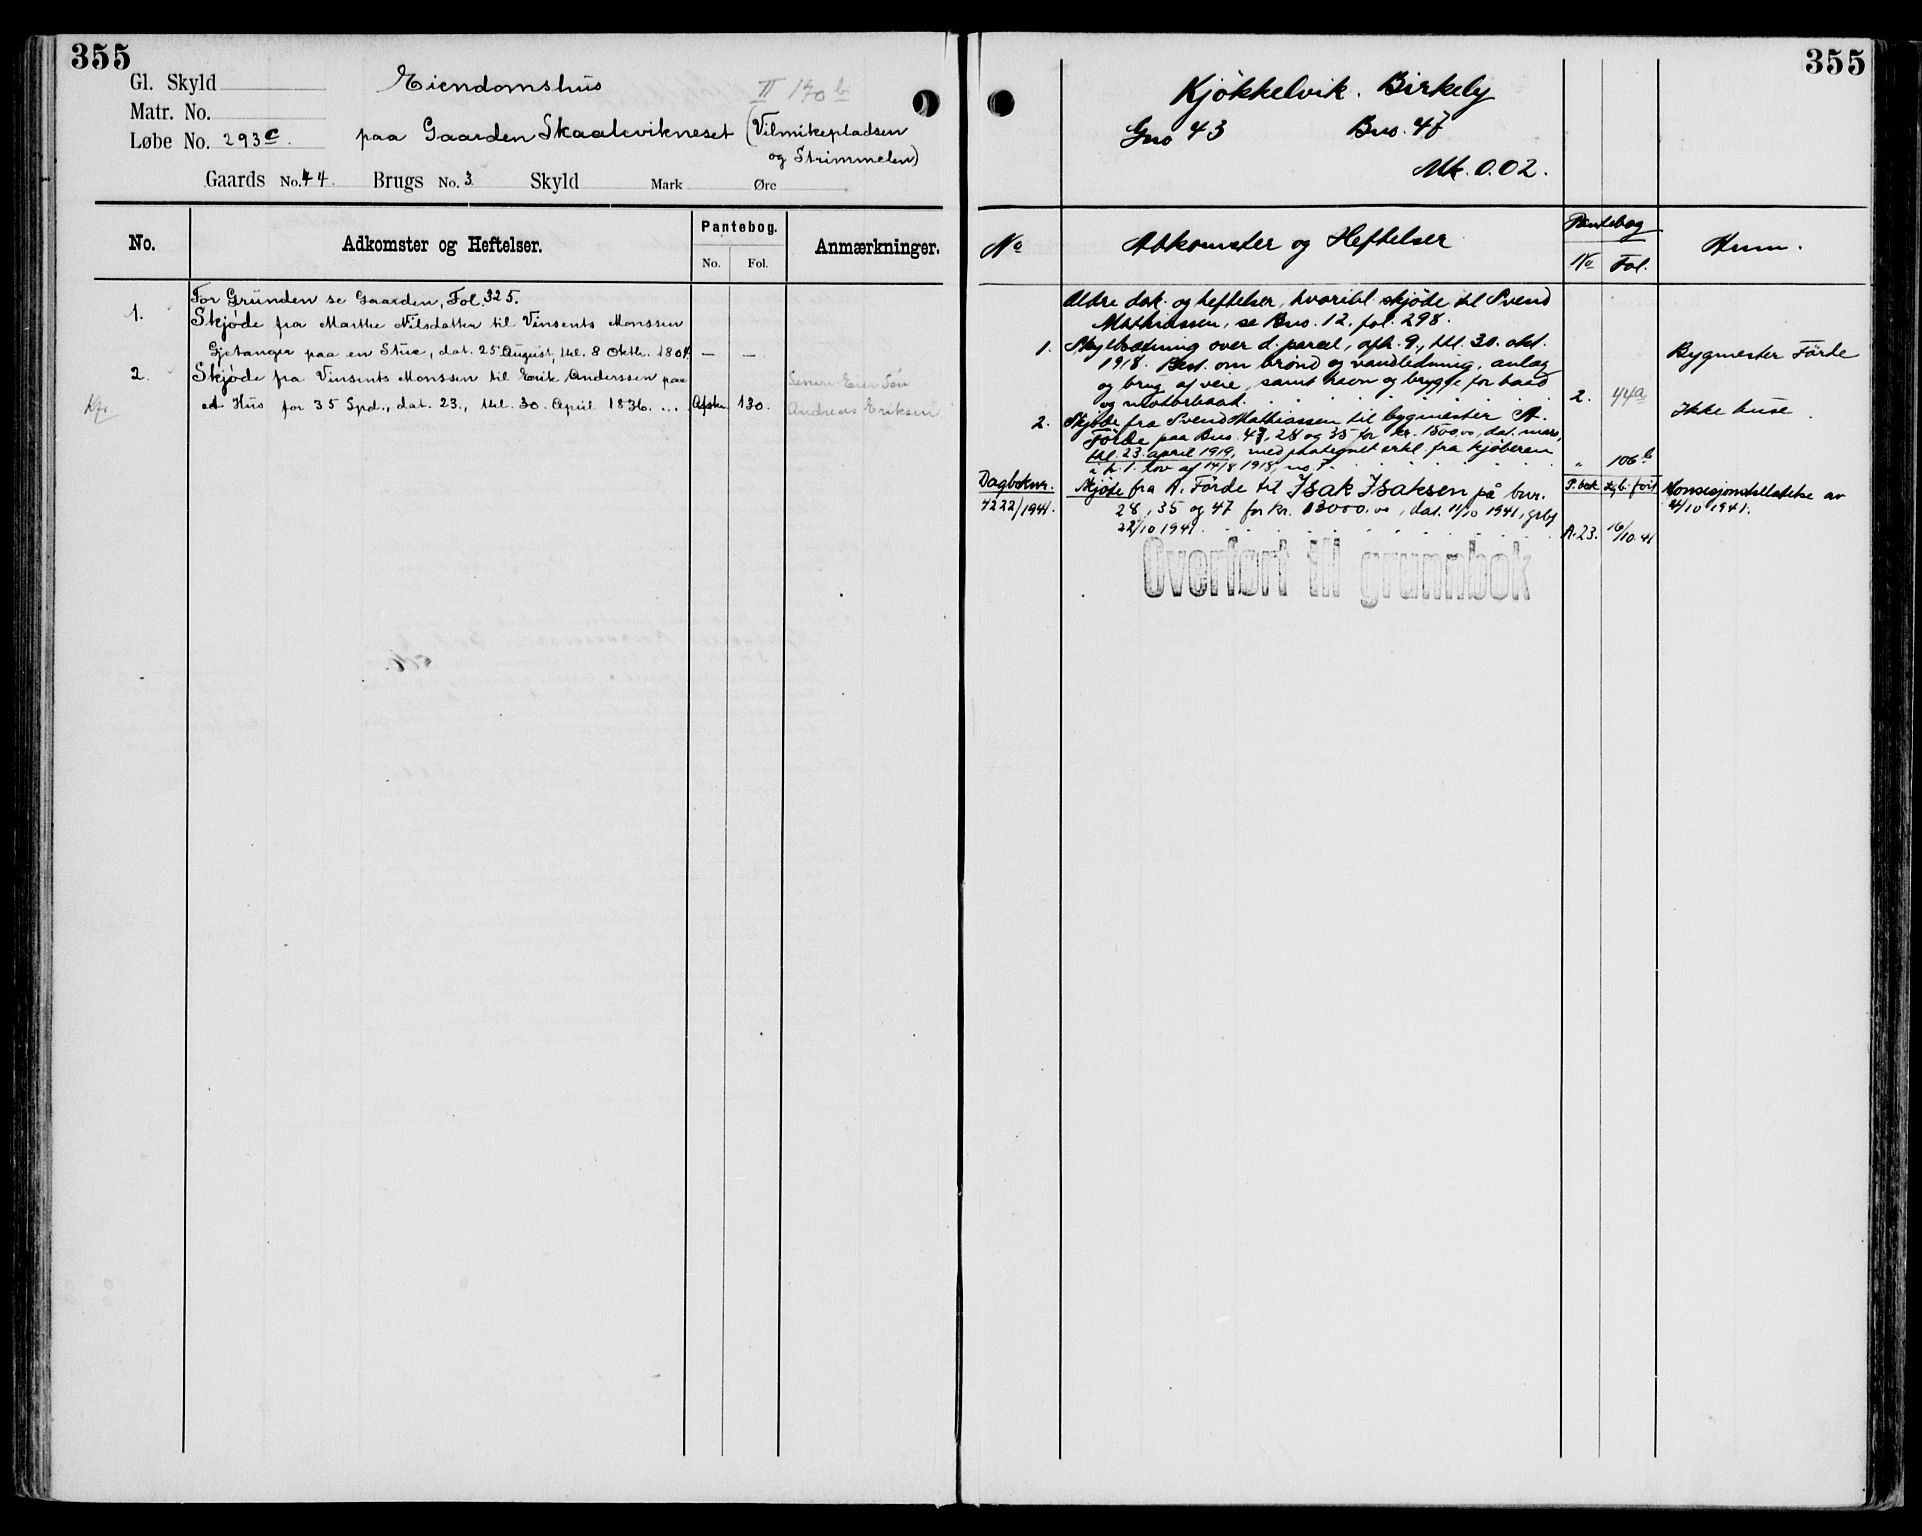 355
Gl. Skyld
Matr. No.
Løbe No. 293c.
Eiendomshus
II 170 b
paa Gaarden Skaalevikneset (Vilmikepladsen
og Strimmelen)
Gaards No. 44. Brugs No. 3 Skyld Mark Øre
No. Adkomster og Heftelser. Pantebog. Anmærkninger.
No. Fol.
For Grunden se Gaarden, Fol. 325.
1. Skjøde fra Marthe Nilsdatter til Vinsents Monssen
Gjetanger paa en Stue, dat. 25 August, thl. 8 Oktb. 1804. — —
2. Skjøde fra Vinsents Monssen til Erik Anderssen paa
et Hus for 35 Spd., dat. 23., thl. 30. April 1836. ... Afskr. 130.
Senere Eier Søn
Andreas Eriksen
355
Kjøkkelvik. Birkely
Gno 43 Bno. 47
Mk. 0.02.
No Adkomster og Heftelser Pantebog Anm.
No Fol.
Ældre dok. og heftelser, hvoribl. skjøde til Svend
Mathiassen, se Bno. 12, fol. 298.
1. Skyldsætning over d. parcel, afh. 9., thl. 30. okt.
1918. Best. om brønd og vandledning, anlæg
og brug af veie, samt havn og brygge for baad
og motorbaad. 2. 44a
Bygmester Førde
2. Skjøde fra Svend Mathiassen til bygmester A.
Førde paa Bno. 47, 28 og 35 for kr. 1500,00, dat. mars,
thl. 23. april 1919, med paategnet erkl. fra kjøberen
i h. t. lov af 14/8 1918, no. 1. " 106b
Ikke huse
Dagboknr. 7222/1941.
Skjøte fra A. Førde til Isak Isaksen på bnr.
28, 35 og 47 for kr. 13000,00, dat. 11/10 1941,
22/10 1941.
P. bok
A. 23. 16/10.41
Konsesjonstillatelse av
21/10 1941.
Overført til grunnbok